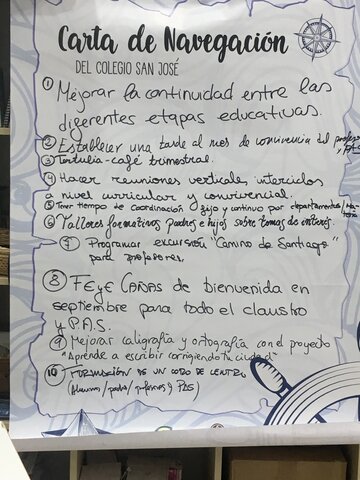 Carta de Navegación
DEL COLEGIO SAN JOSÉ
1 Mejorar la continuidad entre las
diferentes etapas educativas.
2 Establecer una tarde al mes de convivencia del profeso
3 Tertulia-café trimestral.
4 Hacer reuniones verticales interciclos
a nivel curricular y convivencial.
5 Tener tiempo de coordinación fijo y continuo por departamentos/
6 Talleres formativos padres e hijos sobre temas de interés.
7 Programar excursión "Camino de Santiago"
para profesores.
8 FEYE CAÑAS de bienvenida en
septiembre para todo el claustro
y P.A.S.
9 Mejorar caligrafía y ortografía con el proyecto
"Aprende a escribir corrigiendo tu ciudad"
10 FORMACIÓN DE UN CORO DE CENTRO
(Alumnos/padres/profesores y PAS)